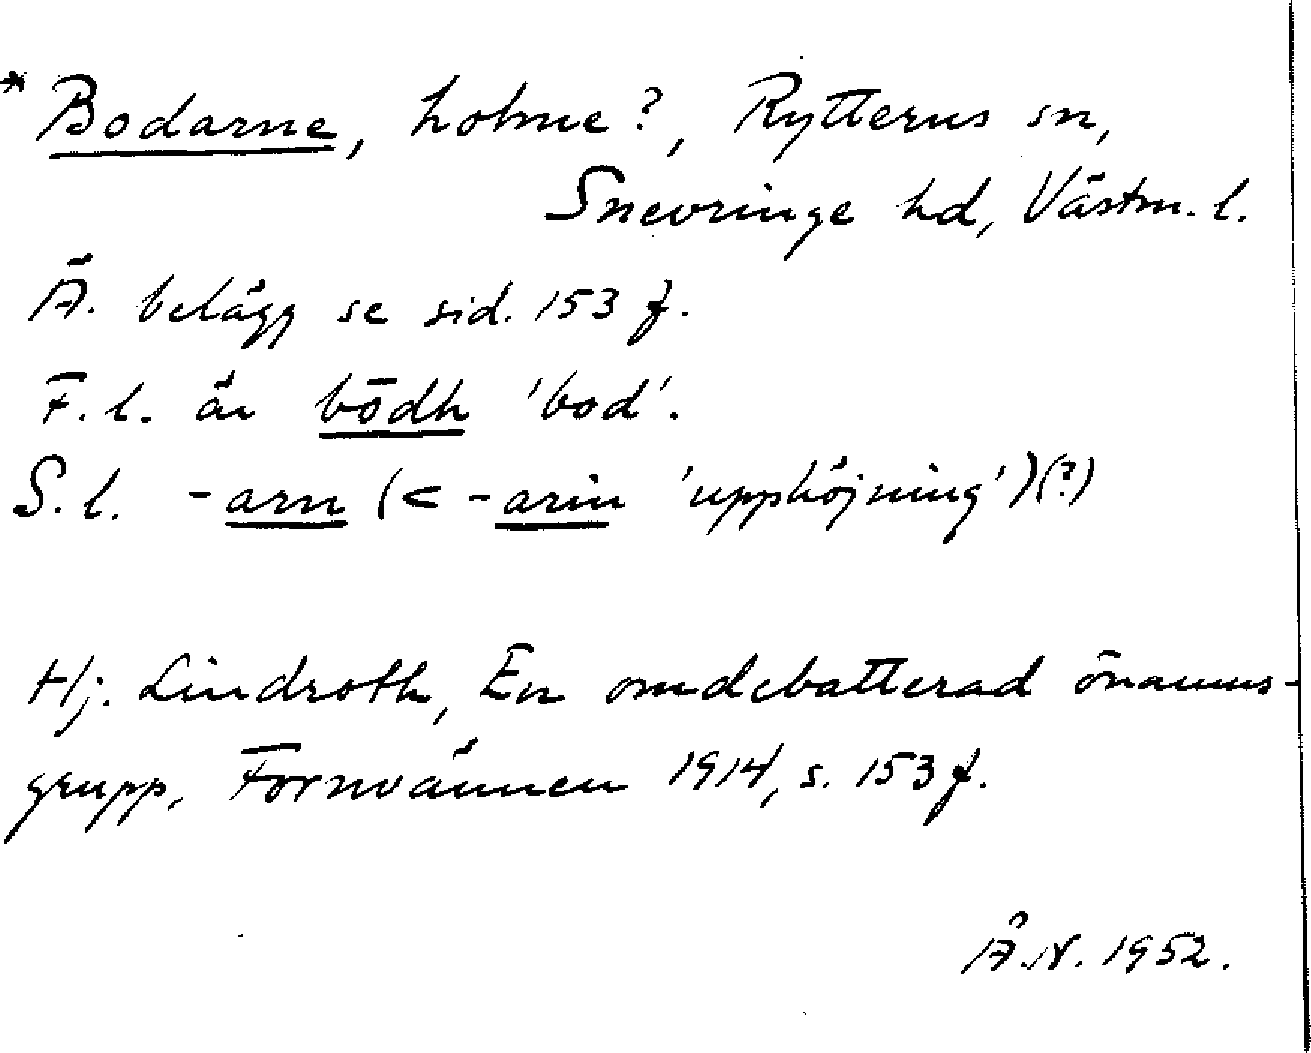 *Bodarne, holme?, Rytterns sn,
Snevringe hd, Västm. l.
Ä. belägg se sid. 153 f.
F. l. är bōdh 'bod'.
S. l. -arn (< -arin 'upphöjning')(?)
Hj. Lindroth, En omdebatterad önamns-
grupp, Fornvännen 1914, s. 153 f.
Å.N. 1952.